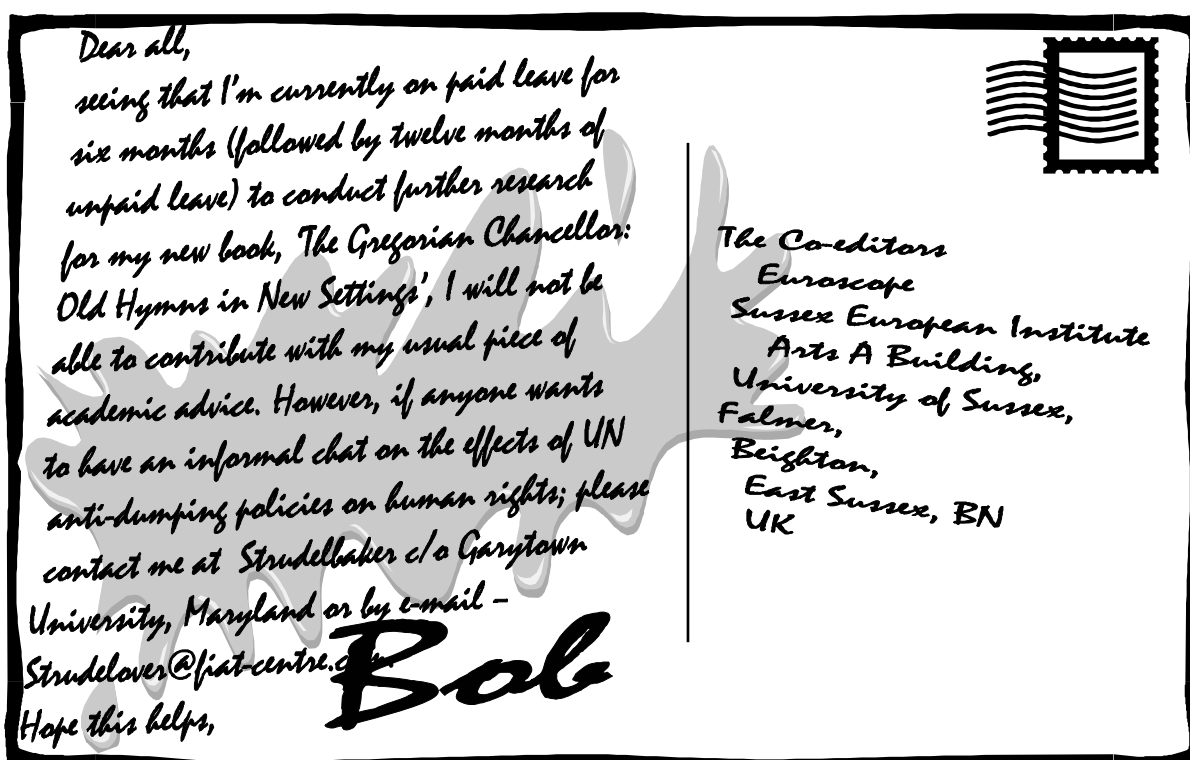 Dear all,
seeing that I'm currently on paid leave for
six months (followed by twelve months of
unpaid leave) to conduct further research
for my new book, 'The Gregorian Chancellor:
Old Hymns in New Settings', I will not be
able to contribute with my usual piece of
academic advice. However, if anyone wants
to have an informal chat on the effects of UN
anti-dumping policies on human rights; please
contact me at Strudelbaker c/o Garytown
University, Maryland or by e-mail –
Strudelover@fiat-centre.com.
Hope this helps,
Bob
The Co-editors
Euroscope
Sussex European Institute
Arts A Building,
University of Sussex,
Falmer,
Beighton,
East Sussex, BN
UK